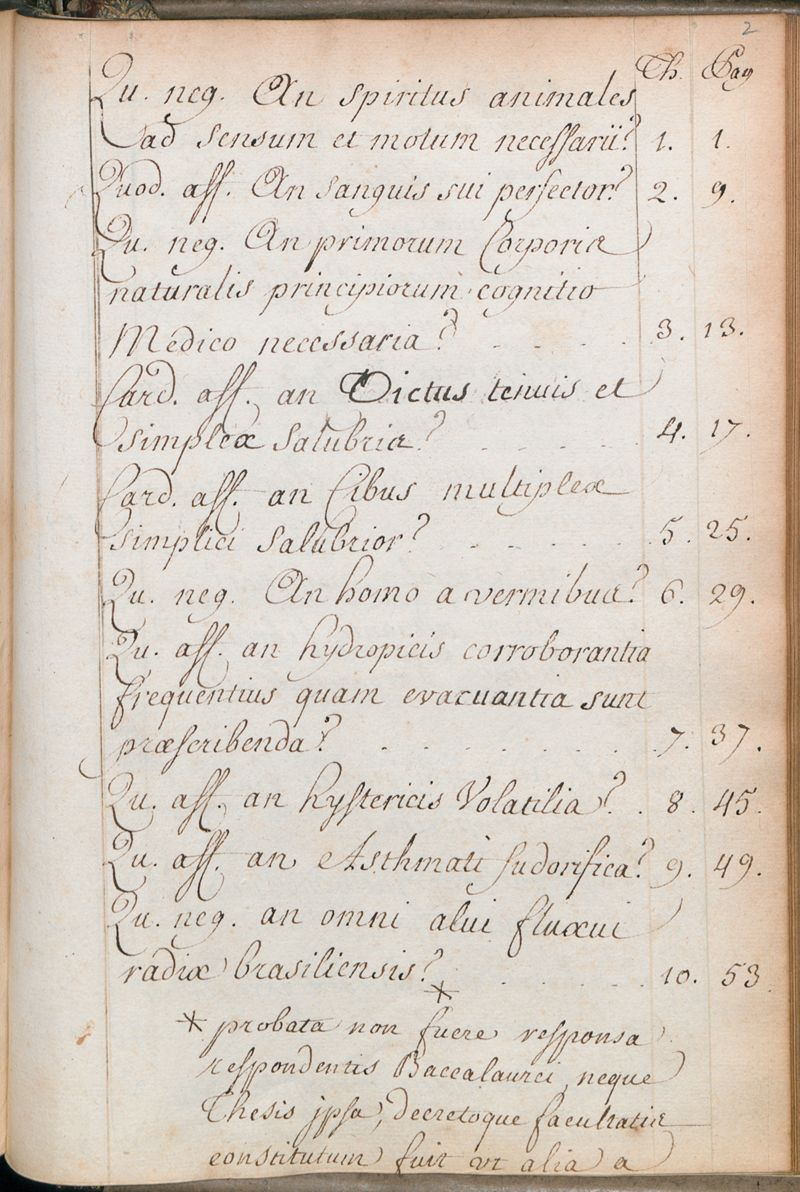 2
Th. Pag
Qu. neg. An spiritus animales
ad sensum et motum necessarii? 1. 1.
Quod. aff. An sanguis sui perfector? 2. 9.
Qu. neg. An primorum Corporis
naturalis principiorum cognitio
Medico necessaria? 3. 13.
Card. aff. an Victus tenuis et
simplex salubris? 4. 17.
Card. aff. an Cibus multiplex
simplici salubrior? 5. 25.
Qu. neg. An homo a vermibus? 6. 29.
Qu. aff. an hydropicis corroborantia
frequentius quam evacuantia sunt
præscribenda? 7. 37.
Qu. aff. an hystericis Volatilia? 8. 45.
Qu. aff. an Asthmati sudorifica? 9. 49.
Qu. neg. an omni alui fluxui
radix brasiliensis? * 10. 53
* probata non fuere responsa
respondentis Baccalaurei neque
Thesis ipsa, decretoque facultatis
constitutum fuit vt alia a